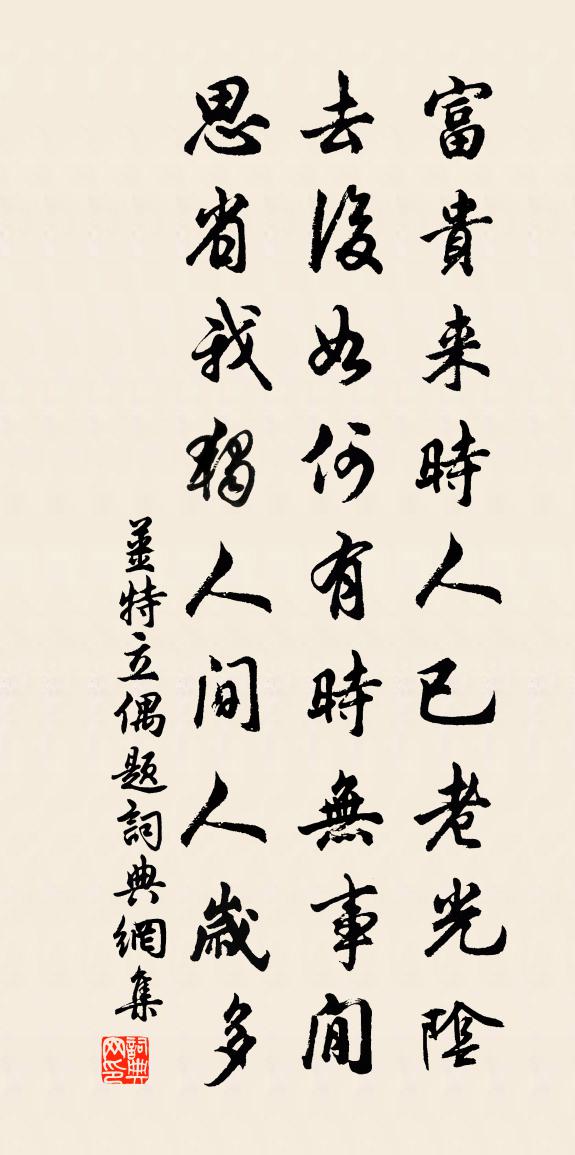 富貴来時人已老光陰
去後如何有時無事閒
思省我獨人間人歲多
姜特立偶題詞典網集
詞典网印